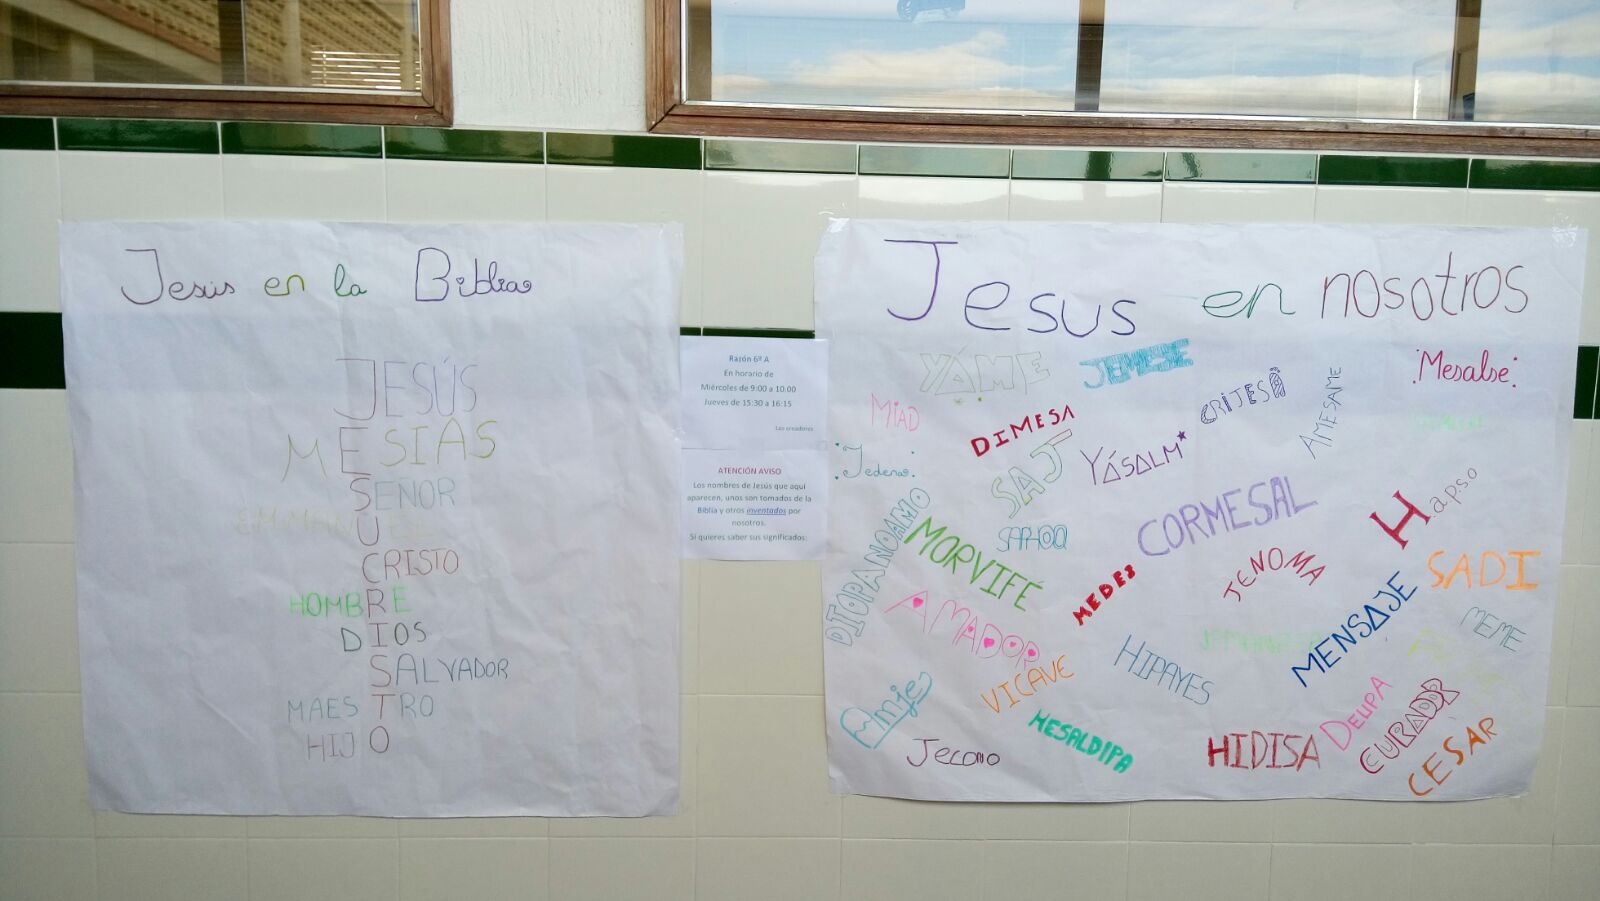 Jesús en la Biblia
JESÚS
MESIAS
SEÑOR
EMMANUEL
CRISTO
HOMBRE
DIOS
SALVADOR
MAESTRO
HIJO
Razón 6º A
En horario de
Miércoles de 9:00 a 10:00
Jueves de 15:30 a 16:15
Los creadores
ATENCIÓN AVISO
Los nombres de Jesús que aquí
aparecen, unos son tomados de la
Biblia y otros inventados por
nosotros.
Si quieres saber sus significados:
Jesus en nosotros
YÁME
JEMESE
Mesalse
MIAD
DIMESA
CRIJESÂ
AMESAME
Jedena
SAJ
YÁSALM
DIOPANOAMO
MORVIFÉ
SAPHOQ
CORMESAL
H.a.p.s.o
MEDES
JENOMA
SADI
AMADOR
HIPAYES
MENSAJE
MEME
VICAVE
Amje
MESALDIPA
Jecono
HIDISA
DEUPA
CURADOR
CESAR